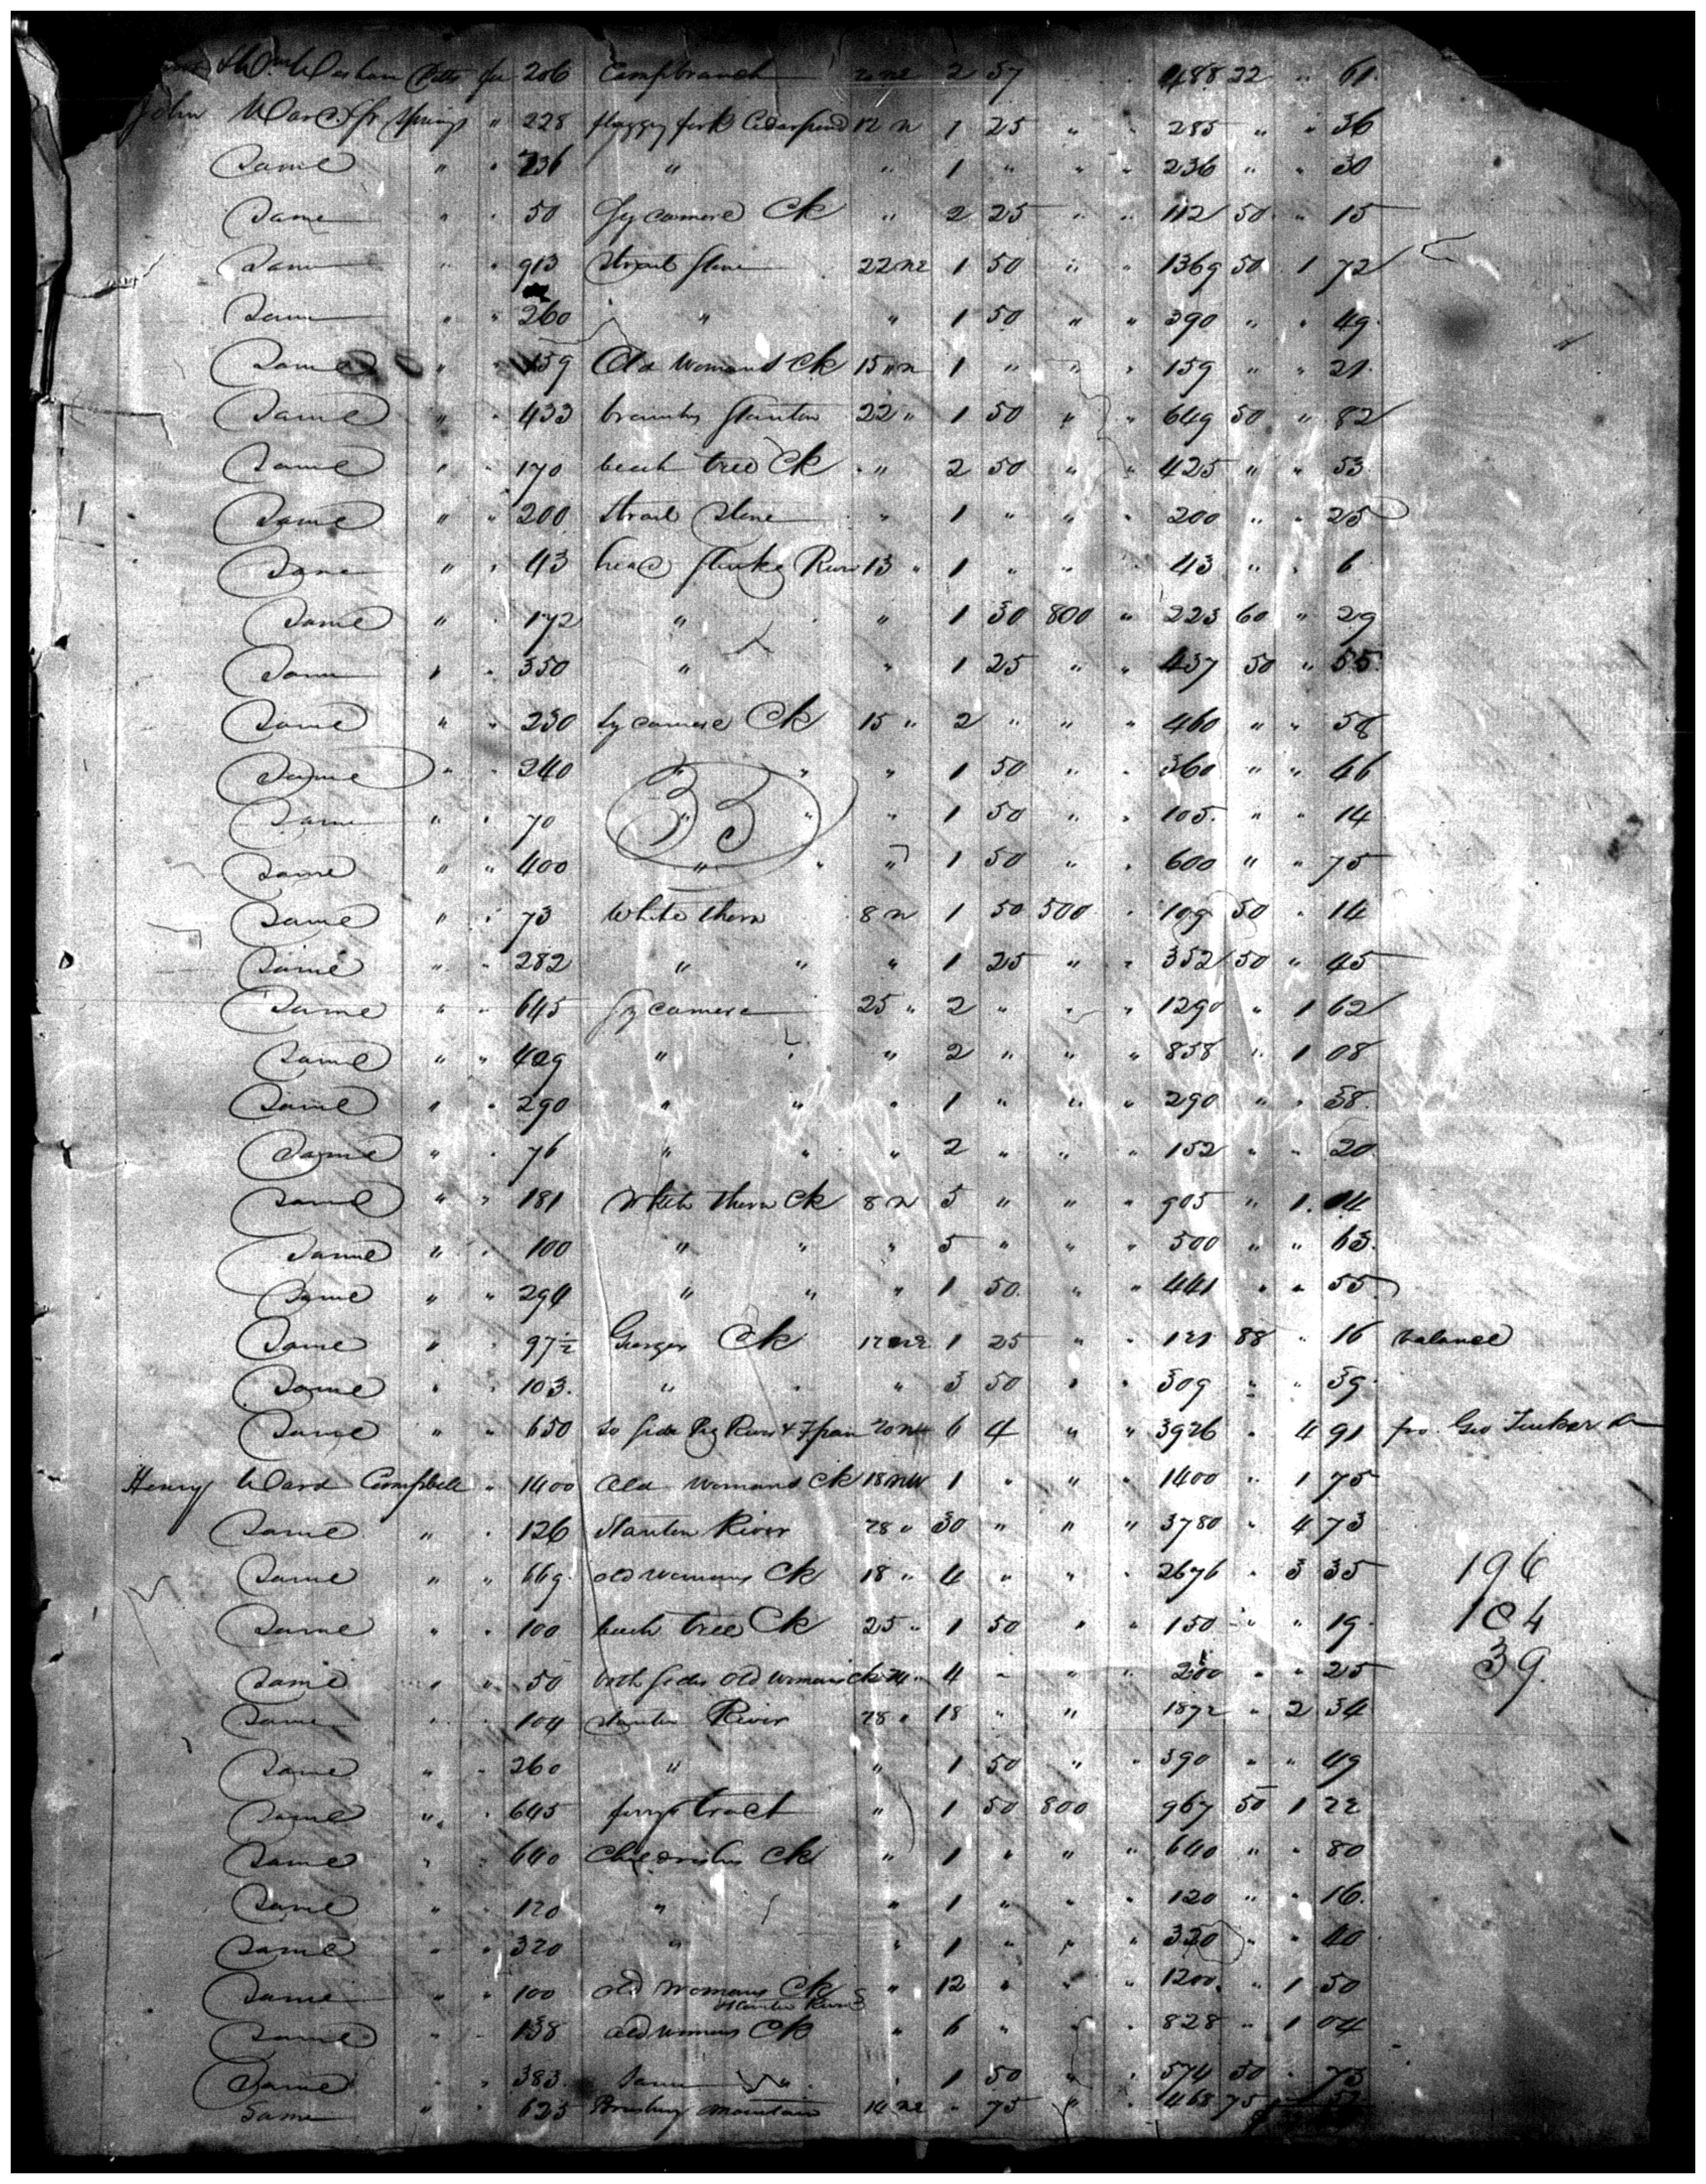 Wm Washam Pitts fee 206 Campbranch 20 ne 2 37 488 22 " 61
John Ward Jr Springs " 228 flaggy fork 12 n 1 25 " " 285 " " 36
Same " " 236 " " 1 " " " 236 " " 30
Same " " 50 Sycamore Ck " 2 25 " " 112 50 " 15
Same " " 913 Strait Stone 22 ne 1 50 " " 1369 50 1 72
Same " " 260 " " 1 50 " " 390 " " 49
Same " 159 Old Womans Ck 15 " n 1 " " " 159 " " 21
Same " " 433 Stanton 22 " 1 50 " " 649 50 " 82
Same " " 170 beech tree Ck " " 2 50 " " 425 " " 53
Same " " 200 Strait Stone " 1 " " " 200 " " 25
Same " " 43 head River 13 " 1 " " 43 " " 6
Same " " 172 " " 1 30 800 " 223 60 " 29
Same " " 350 " " 1 25 " " 437 50 " 55
Same " " 230 Sycamore Ck 15 " 2 " " " 460 " " 58
Same " " 240 " " " 1 50 " " 360 " " 46
33
Same " " 70 " " " 1 50 " " 105 " " 14
Same " " 400 " " " 1 50 " " 600 " " 75
Same " " 73 White thorn 8 n 1 50 500 " 109 50 " 14
Same " " 282 " " " 1 25 " " 352 50 " 45
Same " " 645 Sycamore 25 " 2 " " " 1290 " 1 62
Same " " 429 " " " 2 " " " 858 " 1 08
Same " " 290 " " " 1 " " " 290 " " 38
Same " " 76 " " " 2 " " " 152 " " 20
Same " " 181 White thorn Ck 8 n 5 " " " 905 " 1 14
Same " " 100 " " " 5 " " " 500 " " 63
Same " " 294 " " " 1 50 " " 441 " " 55
Same " " 97½ Georges Ck 12 ne 1 25 " " 121 88 " 16 balance
Same " " 103 " " " 3 50 " " 309 " " 39
Same " " 650 So side Pig River & 20 nw 6 4 " " 3926 " 4 91 Geo Tucker
Henry Ward Campbell " 1400 Old Womans Ck 18 NW 1 " " " 1400 " 1 75
Same " " 126 Stanton River 28 " 30 " " " 3780 " 4 73
Same " " 669 old womans Ck 18 " 4 " " " 2676 " 3 35 196
Same " " 100 beech tree Ck 25 " 1 50 " " 150 " " 19 104
Same " " 50 both sides Old Womans Ck " 4 " " " 200 " " 25 39
Same " " 104 Stanton River 28 " 18 " " 1872 " 2 34
Same " " 260 " " 1 50 " " 390 " " 49
Same " " 645 ferry tract " 1 50 800 967 50 1 22
Same " " 640 Ck " 1 " " " 640 " " 80
Same " " 120 " " 1 " " " 120 " " 16
Same " " 320 " " 1 " " " 320 " " 40
Same " " 100 old Womans Ck " 12 " " " 1200 " 1 50
Stanton River
Same " " 138 old womans Ck " 6 " " " 828 " 1 04
Same " " 383 Same " " 1 50 " " 574 50 " 73
Same " " 625 Brushy Mountain 14 ne " 75 " " 468 75 "